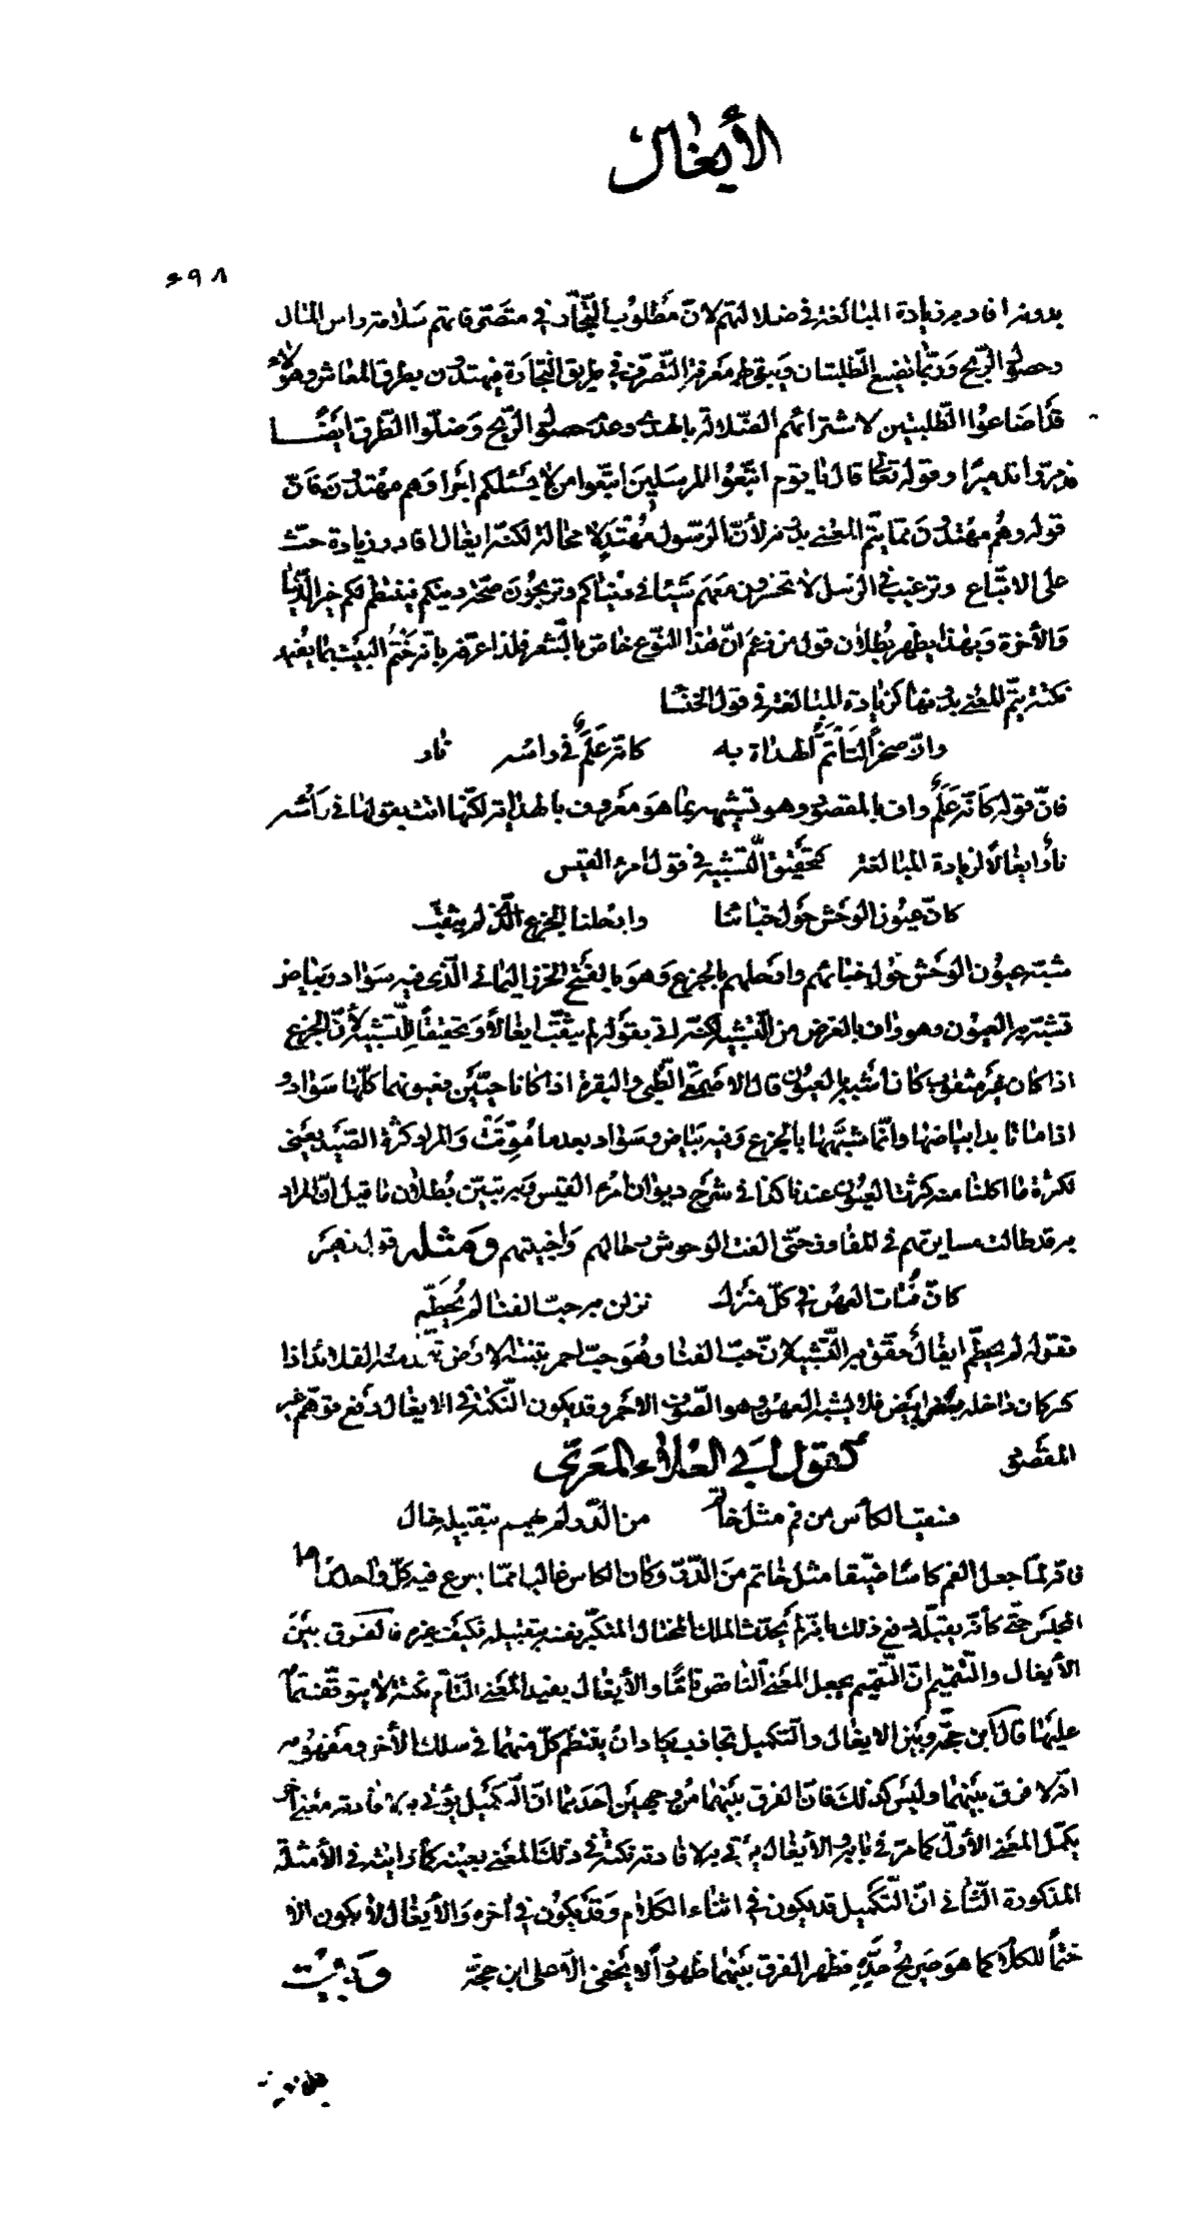 الأيغال
٤٩٨
بدونه افاد به زيادة المبالغة في ضلالتهم لان مطلوب التجّار في متصرّفاتهم سلامة راس المال
وحصول الرّبح وربّما تضيع الطّلبتان ويبقى لهم معرفة التّصرّف في طريق التّجارة فيهتدون بطرق المعاش وهؤلاء
قد أضاعوا الطّلبتين لاشترائهم الضّلالة بالهدى وعدم حصول الرّبح وضلّوا الطّرق ايضًا
فدمروا تدميرًا وقوله تعالى قال يا قوم اتّبعوا المرسلين اتّبعوا من لا يسئلكم اجرا وهم مهتدون فانّ
قوله وهم مهتدون ممّا يتمّ المعنى بدونه لأنّ الرّسول مهتدٍ لا محالة لكنّه ايغال افاد زيادة حثّ
على الاتّباع وترغيب في الرّسل لا تخسرون معهم شيئا في دنياكم وتربحون صحّة دينكم فينتظم لكم خير الدّنيا
والأخرة وبهذا يظهر بطلان قول من زعم انّ هذا النّوع خاصّ بالشّعر فلذا عرّفه بأنّه ختم البيت بما يفيد
نكتة يتمّ المعنى بدونها كزيادة المبالغة في قول الخنسا
وانّ صخراً لتأتمّ الهداة به كانّه علمٌ في رأسه نار
فانّ قوله كأنّه علمٌ واف بالمقصود وهو تشبيهه بما هو معروف بالهداية لكنّها اتت بقولها في رأسه
نارٌ ايغالاً لزيادة المبالغة كتحقيق التّشبيه في قول امرء القيس
كانّ عيون الوحش حول خبائنا وارحلنا الجزع الّذي لم يثقّب
شبّه عيون الوحش حول خبائهم وارحلهم بالجزع وهو بالفتح الخرز اليماني الّذي فيه سواد وبياض
تشبّه به العيون وهو واف بالغرض من التّشبيه لكنّه اتى بقوله لم يثقّب ايغالاً وتحقيقاً للتّشبيه لأنّ الجزع
اذا كان غير مثقوب كان أشبه بالعيون قال الاصمعي الظّبي والبقرة اذا كانا حيّين فعيونهما كلّها سواد و
اذا ماتا بدا بياضها وانّما شبّهها بالجزع وفيه بياض وسواد بعدما موّتت والمراد كثرة الصّيد يعني
لكثرة ما اكلنا منه كثرت العيون عندنا كذا في شرح ديوان امرء القيس وبه تبيّن بطلان ما قيل انّ المراد
به قد طالت مسايرتهم في المفاوز حتّى الفت الوحوش رحالهم واخبيتهم ومثله قول زهير
كانّ فتات العهن في كلّ منزل نزلن به حبّ الفنا لم يحطّم
فقوله لم يحطّم ايغال حقّق به التّشبيه لانّ حبّ الفنا وهو حبّ احمر تنبته الارض تتّخذ منه القلائد اذا
كسر كان داخله أبيض فلا يشبه العهن وهو الصّوف الاحمر وقد يكون النّكتة في الايغال دفع توهّم غير
المقصود كقول ابي العلاء المعرّي
فسقيا لكأس من فم مثل خاتم من الدّر لم يهمم بتقبيله خال
فانّه لمّا جعل الفم كاسًا ضيّقا مثل خاتم من الدّر وكان الكاس غالبا ممّا يكرع فيه كلّ واحد من اهل
المجلس حتّى كأنّه يقبّله دفع ذلك بانّه لم يحدّث الملك المختال المتكبّر نفسه بتقبيله فكيف غيره فالفرق بين
الأيغال والتّتميم انّ التّتميم يجعل المعنى النّاقص تامًّا والأيغال يفيد المعنى التّامّ نكتة لا يتوقّف تمامه
عليها قال ابن حجّة وبين الايغال والتكميل تجاذب يكاد ان ينتظم كلّ منهما في سلك الأخر ومفهومه
انّه لا فرق بينهما وليس كذلك فانّ الفرق بينهما من وجهين احدهما انّ التّكميل يؤتى به لإفادته معنى اخر
يكمّل المعنى الأوّل كما مرّ في بابه والأيغال يؤتى به لافادته نكتة في ذلك المعنى بعينه كما رايته في الأمثلة
المذكورة الثّاني انّ التّكميل قد يكون في اثناء الكلام وقد يكون في أخره والأيغال لا يكون الا
ختماً للكلام كما هو صريح حدّه فظهر الفرق بينهما ظهوراً لا يخفى الّا على ابن حجّة وبيت